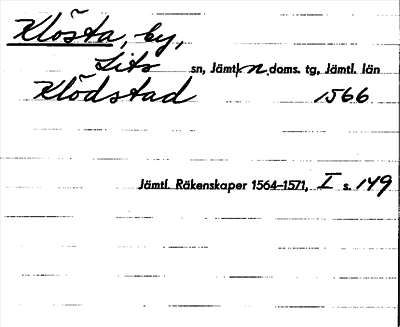 Klösta, by,
Lits sn, Jämtl. n. doms. tg, Jämtl. län
Klödstad 1566
Jämtl. Räkenskaper 1564–1571, I s. 149